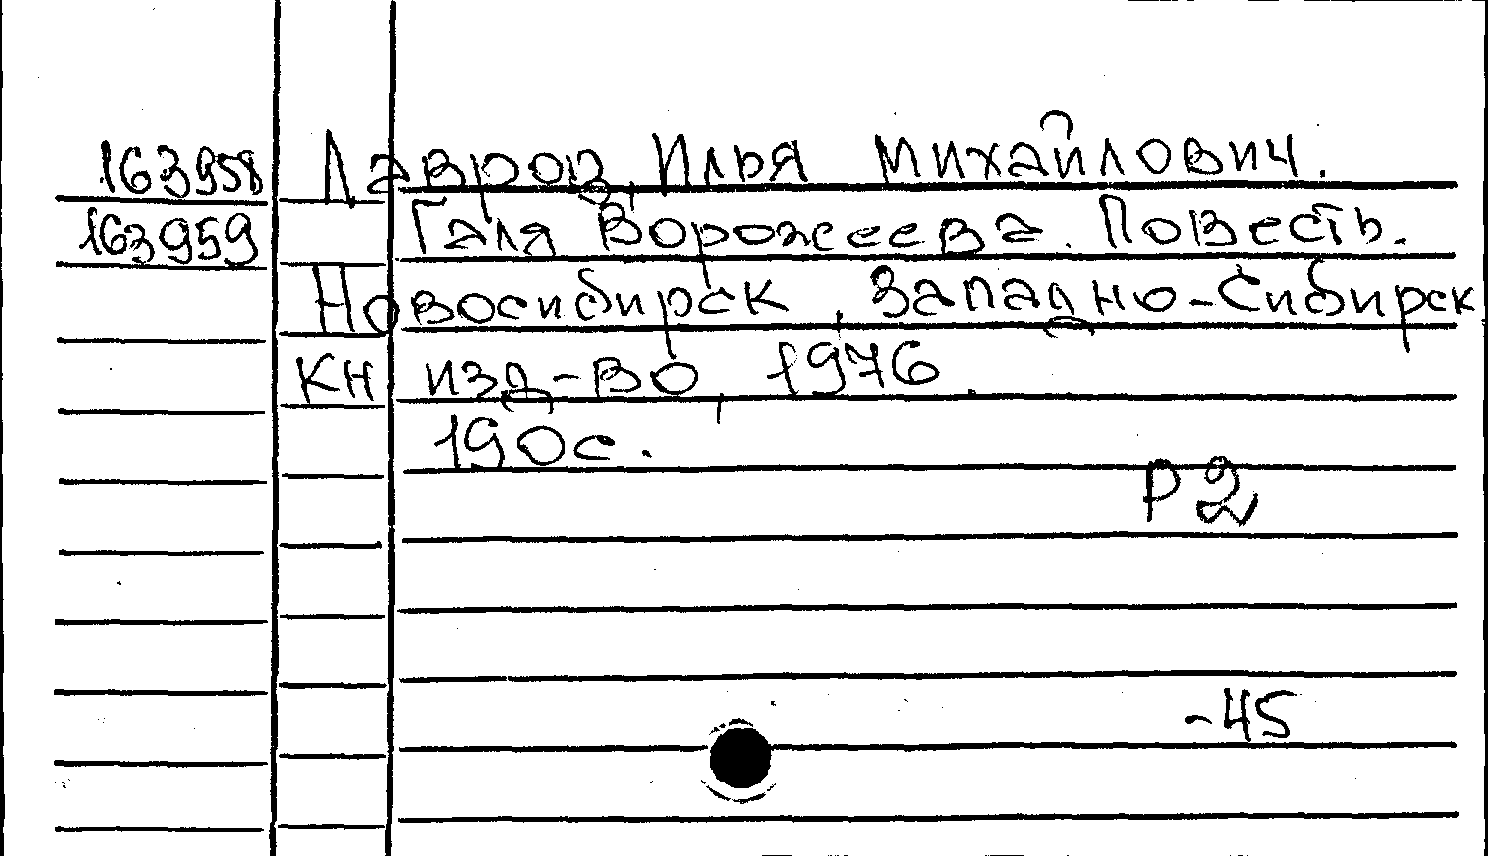 163958 Лавров, Илья Михайлович.
163959 Галя Ворожеева. Повесть.
Новосибирск, Западно-Сибирск
кн изд-во, 1976.
190с.
Р2
-45